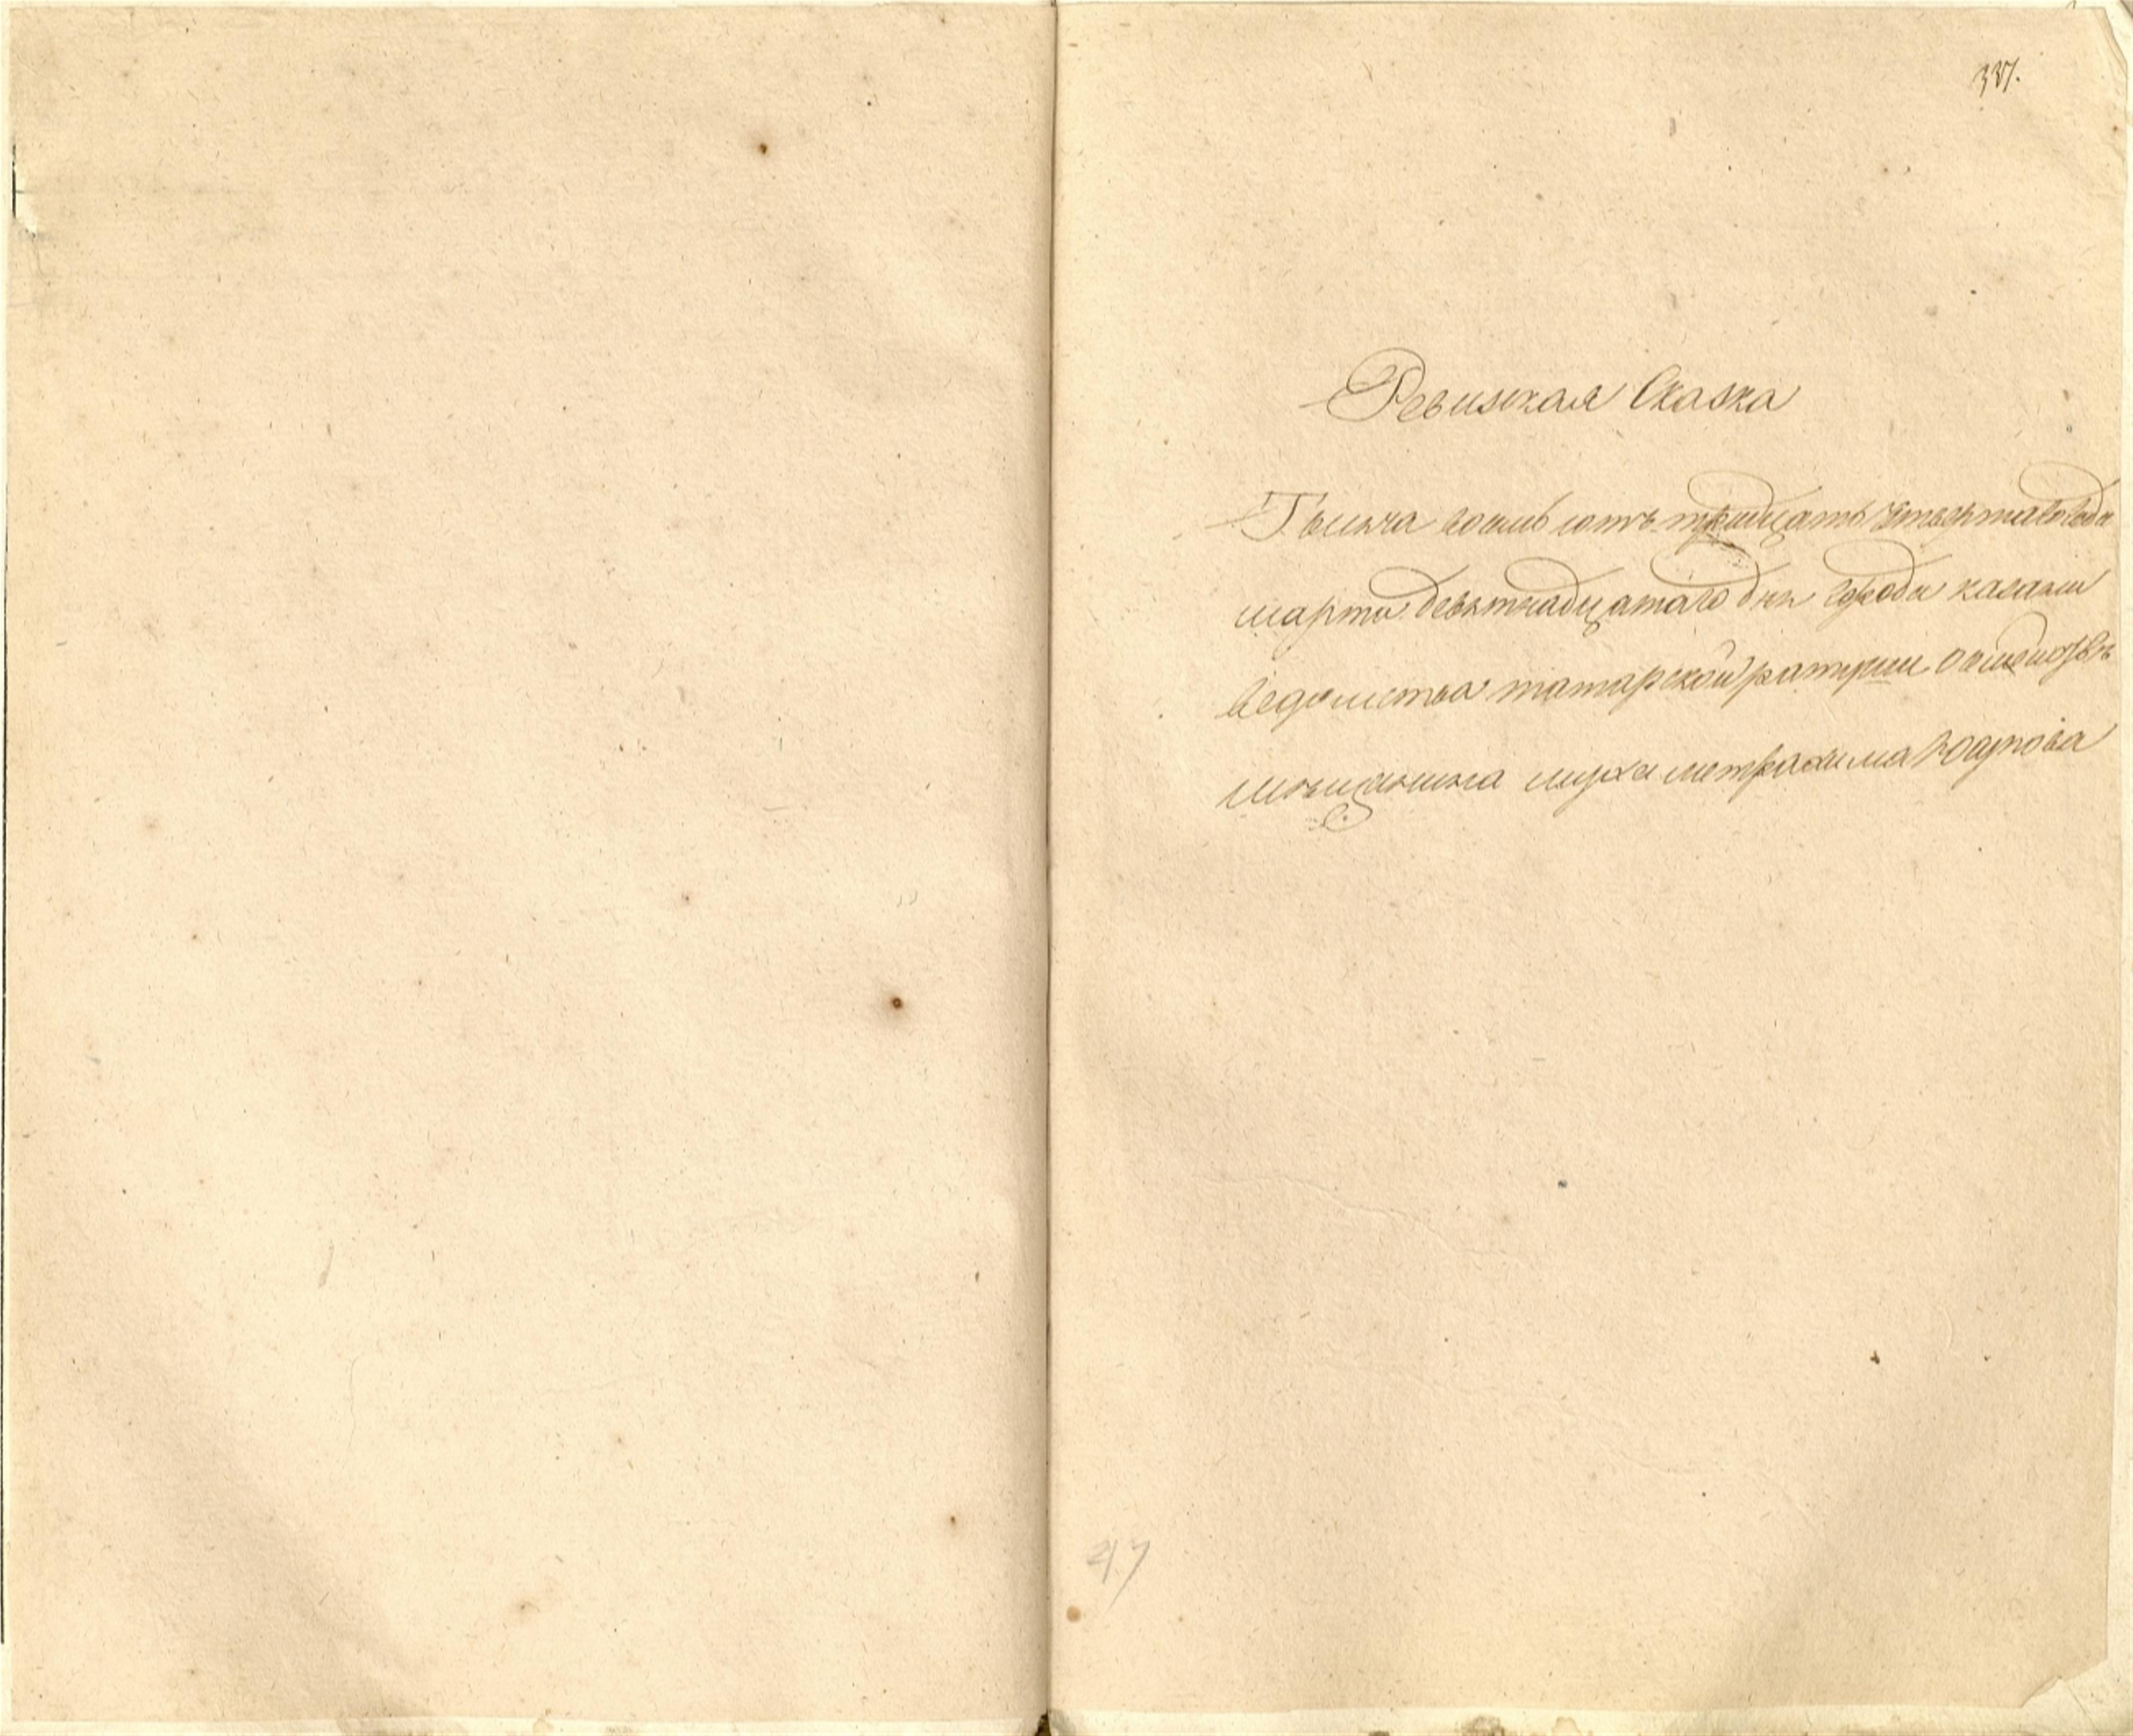 337.
Ревизская Сказка
Тысяча восемь сотъ тридцать четвертаго года
марта девятнадцатаго дня города казани
ведомства татарской ратуши о
мѣщанина мухаметрахима Юсупова
47